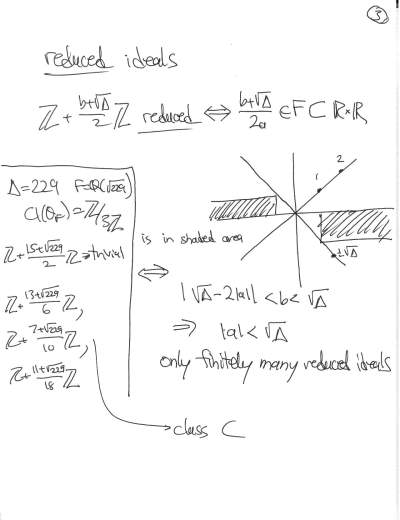 ③
reduced ideals
ℤ + b+√Δ/2 ℤ reduced ⇔ b+√Δ/2a ∈ F ⊂ ℝ×ℝ
Δ=229 F=Q(√229)
Cl(O_F)=ℤ/3ℤ
ℤ+ 15+√229/2 ℤ = trivial
ℤ+ 13+√229/6 ℤ,
ℤ+ 7+√229/10 ℤ,
ℤ+ 11+√229/18 ℤ
1
2
is in shaded area
⇔
|√Δ-2|a|| < b < √Δ
⇒ |a| < √Δ
only finitely many reduced ideals
class C